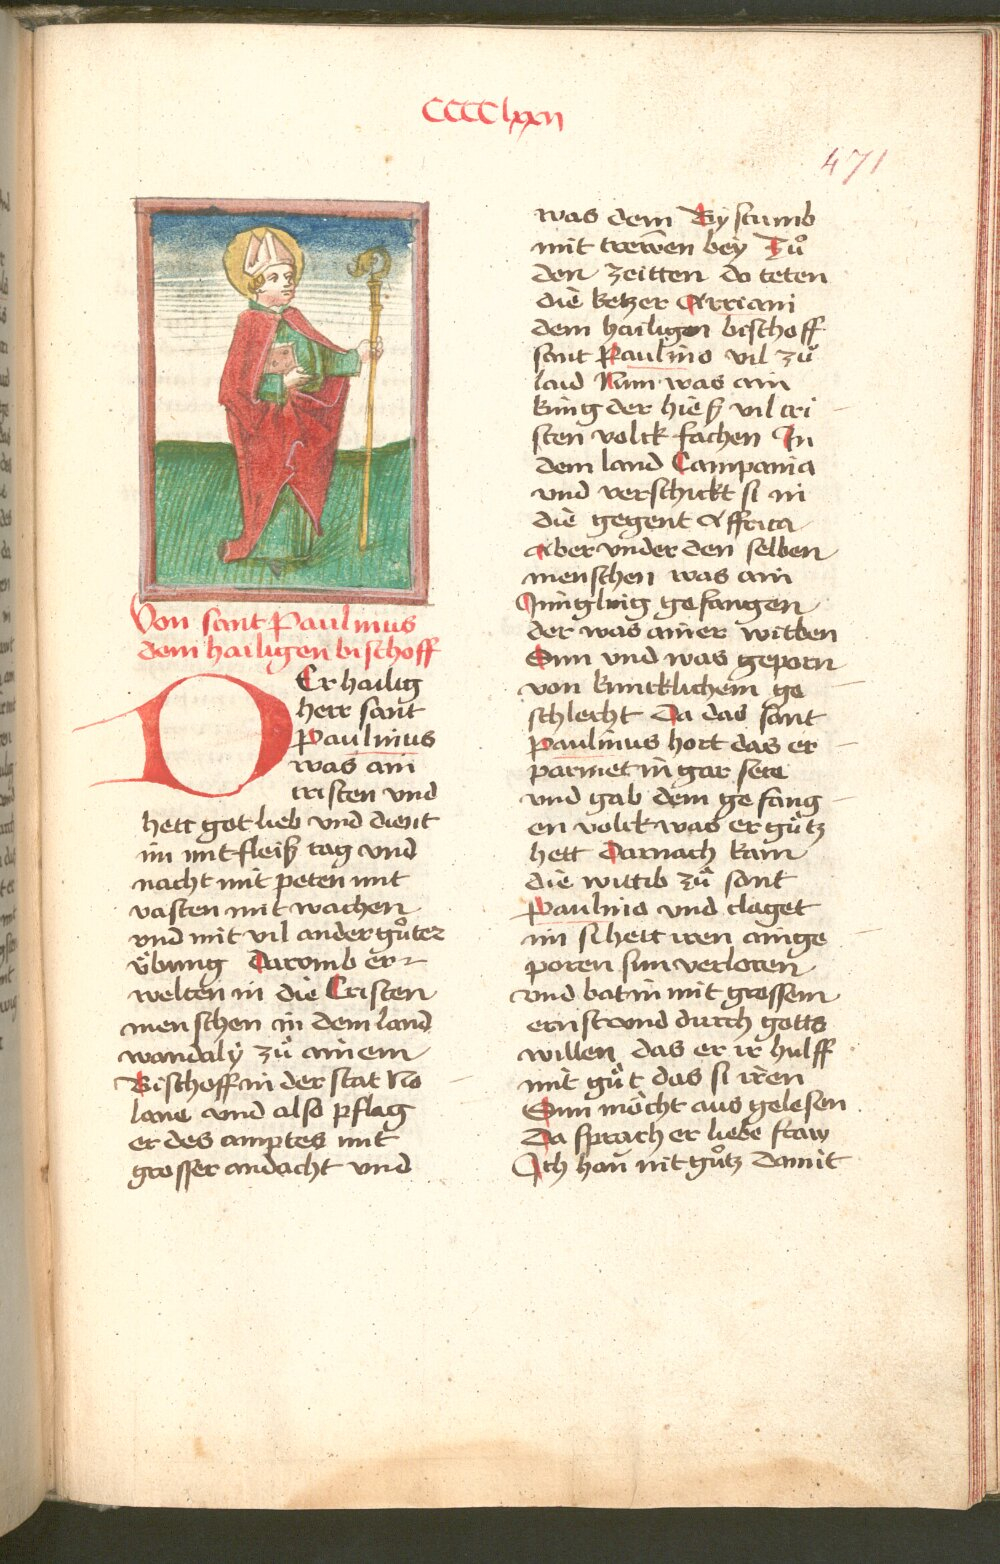 CCCClxxii
471
Von sant Paulinus
dem hailigen bischoff
DEr hailig
herr sant
Paulinus
was ain
cristen vnd
hett got lieb vnd dient
im mit fleiß tag vnd
nacht mit peten mit
vasten mit wachen
vnd mit vil ander gůter
vbung Darvmb er
welten in die Cristen
menschen in dem land
wandalÿ zů ainem
Bischoff in der stat No
lane vnd also pflag
er des amptes mit
grosser andacht vnd
was dem Bÿstumb
mit trewen bey Zů
den zeitten do teten
die ketzer Arriani
dem hailigen bischoff
sant Paulino vil zů
laid Nun was ain
küng der hieß vil cri
sten volck fachen In
dem land Campania
vnd verschickt si in
die gegent Affrica
Aber vnder den selben
menschen was ain
Jüngling gefangen
der was ainer witben
Sun vnd was geporn
von kuncklichem ge
schlecht Da das sant
Paulinus hort das er
parmet in gar sere
vnd gab dem gefang
en volck was er gůtz
hett Darnach kam
die wittib zů sant
Paulino vnd claget
im si hett iren ainge
poren sun verloren
vnd bat in mit grossem
ernst vnd durch gotts
willen das er ir hulff
mit gůt das si iren
Sun möcht aus gelesen
Da sprach er liebe fraw
Ich han nit gůtz damit